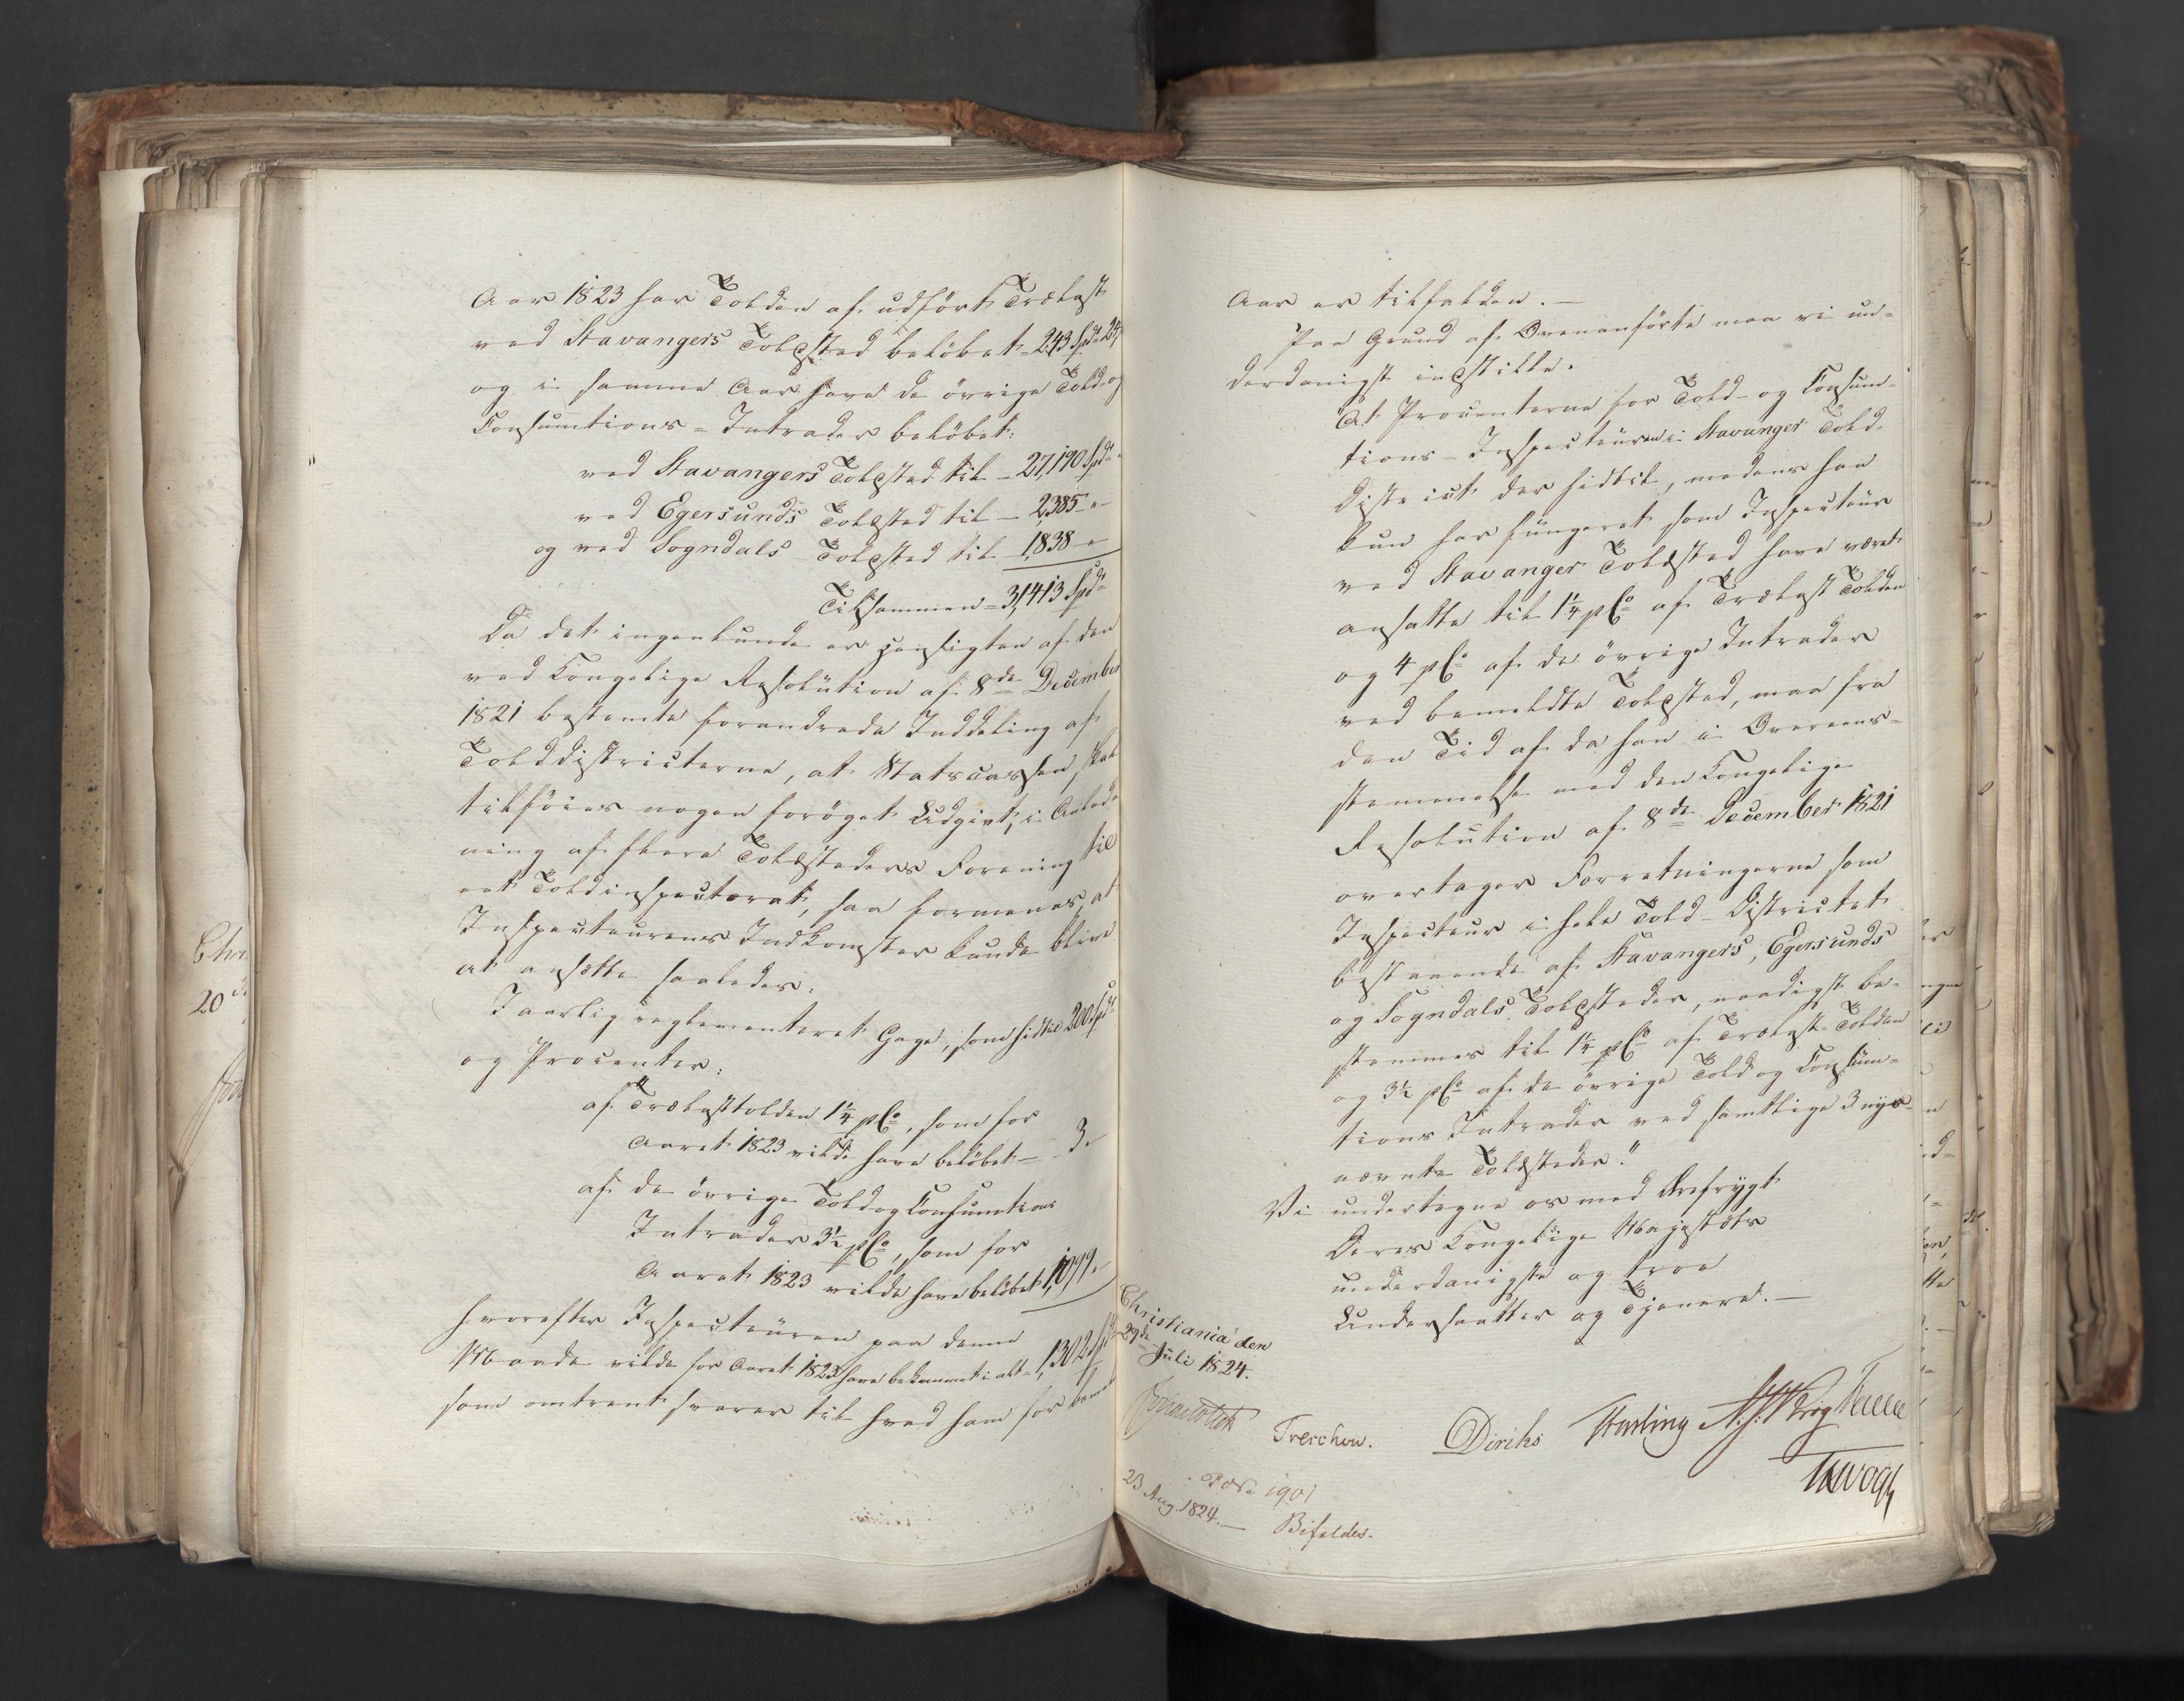 Aar 1823 har Tolden af udført Trælast
ved Stavangers Toldsted beløbet = 243 Spd= 24
og i samme Aar have de øvrige Told- og
Consumtions-Intrader beløbet:
ved Stavangers Toldsted til - 27,190 Spd=
ved Egersunds Toldsted til - 2,385 "
og ved Sogndals Toldsted til 1,838 "
Tilsammen = 31,413 Spd=
Da det ingenlunde er Hensigten af den
ved Kongelige Resolution af 8de December
1821 bestemte forandrede Inddeling af
Tolddistricterne, at Statscassen skal
tilføies nogen forøget Udgivt, i Anled-
ning af flere Toldsteders Forening til
eet Toldinspectorat, saa formenes, at
Inspecteurens Indkomster kunde blive
at ansætte saaledes:
I aarlig reglementeret Gage, som hidtil 200 Spd=
og Procenter:
af Trælasttolden 1¼ pCo, som for
Aaret 1823 vilde have beløbet - 3 "
af de øvrige Told og Consumtions
Intrader 3½ pCo, som for
Aaret 1823 vilde have beløbet 1,099 "
hvorefter Inspecteuren paa denne
Maade vilde for Aaret 1823 have bekommet i alt - 1,302 Spd
som omtrent svarer til hvad ham for
Aar er tilfalden. —
Paa Grund af Ovenanførte maa vi un-
derdanigst indstille:
"At Procenterne for Told- og Consum-
tions-Inspecteuren i Stavanger Told-
District der hidtil, medens han
kun har fungeret som Inspecteur
ved Stavanger Toldsted have været
ansatte til 1¼ pCo af Trælast Tolden
og 4 pCo af de øvrige Intrader
ved bemeldte Toldsted, maa fra
den Tid af da han i Overeens-
stemmelse med den Kongelige
Resolution af 8de December 1821
overtager Forretningerne som
Inspecteur i hele Told-Districtet
bestaaende af Stavangers, Egersunds
og Sogndals Toldsteder, naadigst be-
stemmes til 1¼ pCo af Trælast-Tolden
og 3½ pCo af de øvrige Told og Consum-
tions Intrader ved samtlige 3 nys-
nævnte Toldsteder."
Vi undertegne os med Ærefrygt
Deres Kongelige Majestæts
underdanigste og troe
Undersaatter og Tjenere. —
Christiania den
29de Juli 1824.
Treschow. Diriks
23 Aug. 1824. —
Bifaldes.